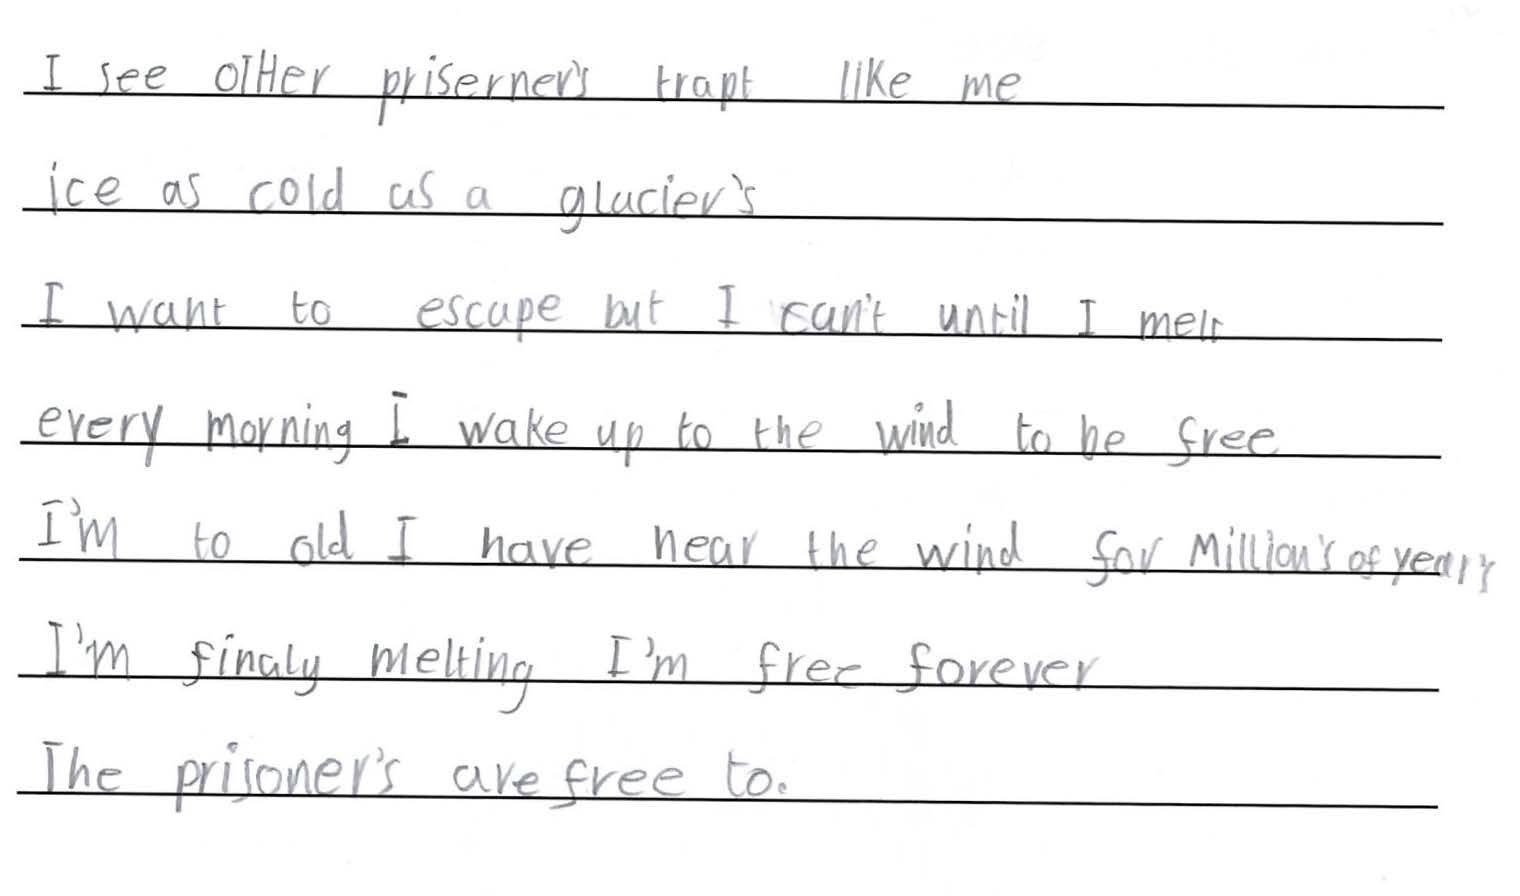 I see other priserner's trapt like me
ice as cold as a glacier's
I want to escape but I can't until I melt
every morning I wake up to the wind to be free
I'm to old I have hear the wind for Million's of year's
I'm finaly melting I'm free forever
The prisoner's are free to.